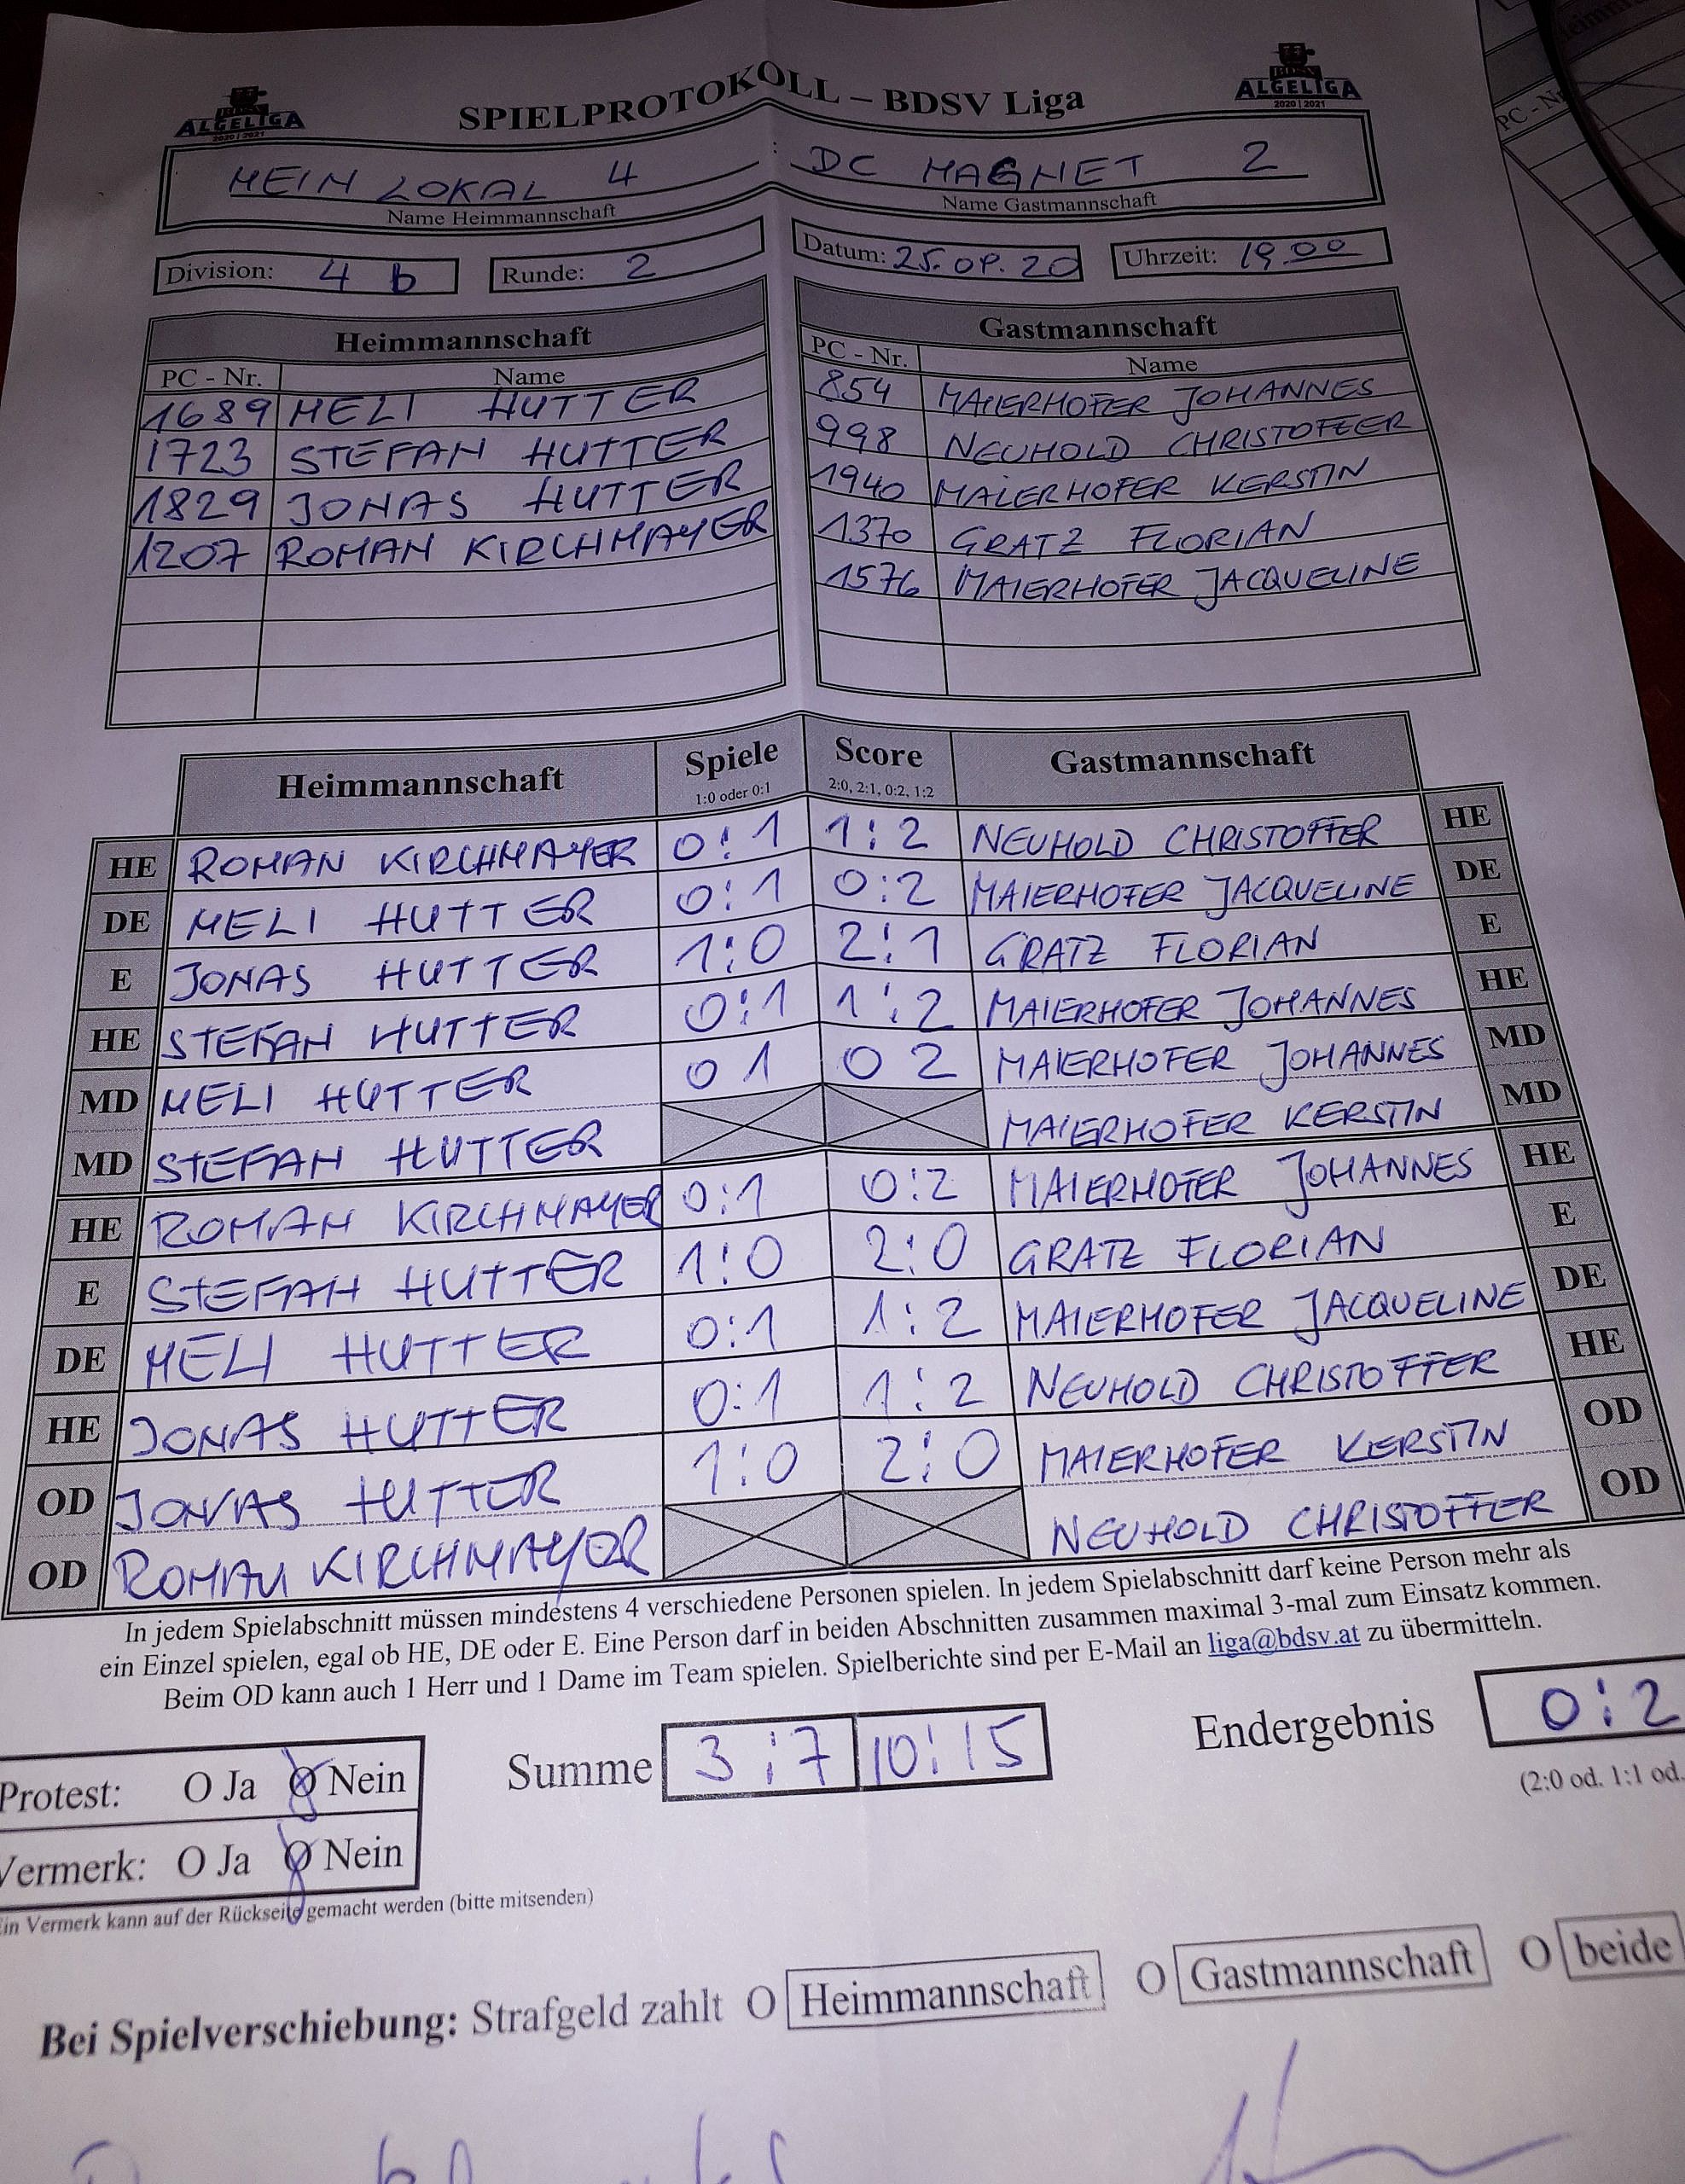 BDSV
ALGELIGA
2020 | 2021
SPIELPROTOKOLL – BDSV Liga
BDSV
ALGELIGA
2020 | 2021
MEIN LOKAL 4 : DC MAGNET 2
Name Heimmannschaft Name Gastmannschaft
Division: 4 b Runde: 2 Datum: 25.09.20 Uhrzeit: 19.00
Heimmannschaft Gastmannschaft
PC - Nr. Name PC - Nr. Name
1689 MELI HUTTER 854 MAIERHOFER JOHANNES
1723 STEFAN HUTTER 998 NEUHOLD CHRISTOFFER
1829 JONAS HUTTER 1940 MAIERHOFER KERSTIN
1207 ROMAN KIRCHMAYER 1370 GRATZ FLORIAN
1576 MAIERHOFER JACQUELINE
Heimmannschaft Spiele Score Gastmannschaft
1:0 oder 0:1 2:0, 2:1, 0:2, 1:2
HE ROMAN KIRCHMAYER 0:1 1:2 NEUHOLD CHRISTOFFER HE
DE MELI HUTTER 0:1 0:2 MAIERHOFER JACQUELINE DE
E JONAS HUTTER 1:0 2:1 GRATZ FLORIAN E
HE STEFAN HUTTER 0:1 1:2 MAIERHOFER JOHANNES HE
MD MELI HUTTER 0 1 0 2 MAIERHOFER JOHANNES MD
MD STEFAN HUTTER MAIERHOFER KERSTIN MD
HE ROMAN KIRCHMAYER 0:1 0:2 MAIERHOFER JOHANNES HE
E STEFAN HUTTER 1:0 2:0 GRATZ FLORIAN E
DE MELI HUTTER 0:1 1:2 MAIERHOFER JACQUELINE DE
HE JONAS HUTTER 0:1 1:2 NEUHOLD CHRISTOFFER HE
OD JONAS HUTTER 1:0 2:0 MAIERHOFER KERSTIN OD
OD ROMAN KIRCHMAYER NEUHOLD CHRISTOFFER OD
In jedem Spielabschnitt müssen mindestens 4 verschiedene Personen spielen. In jedem Spielabschnitt darf keine Person mehr als
ein Einzel spielen, egal ob HE, DE oder E. Eine Person darf in beiden Abschnitten zusammen maximal 3-mal zum Einsatz kommen.
Beim OD kann auch 1 Herr und 1 Dame im Team spielen. Spielberichte sind per E-Mail an liga@bdsv.at zu übermitteln.
Protest: O Ja O Nein Summe 3:7 10:15 Endergebnis 0:2
(2:0 od. 1:1 od.
Vermerk: O Ja O Nein
Ein Vermerk kann auf der Rückseite gemacht werden (bitte mitsenden)
Bei Spielverschiebung: Strafgeld zahlt O Heimmannschaft O Gastmannschaft O beide
PC - Nr